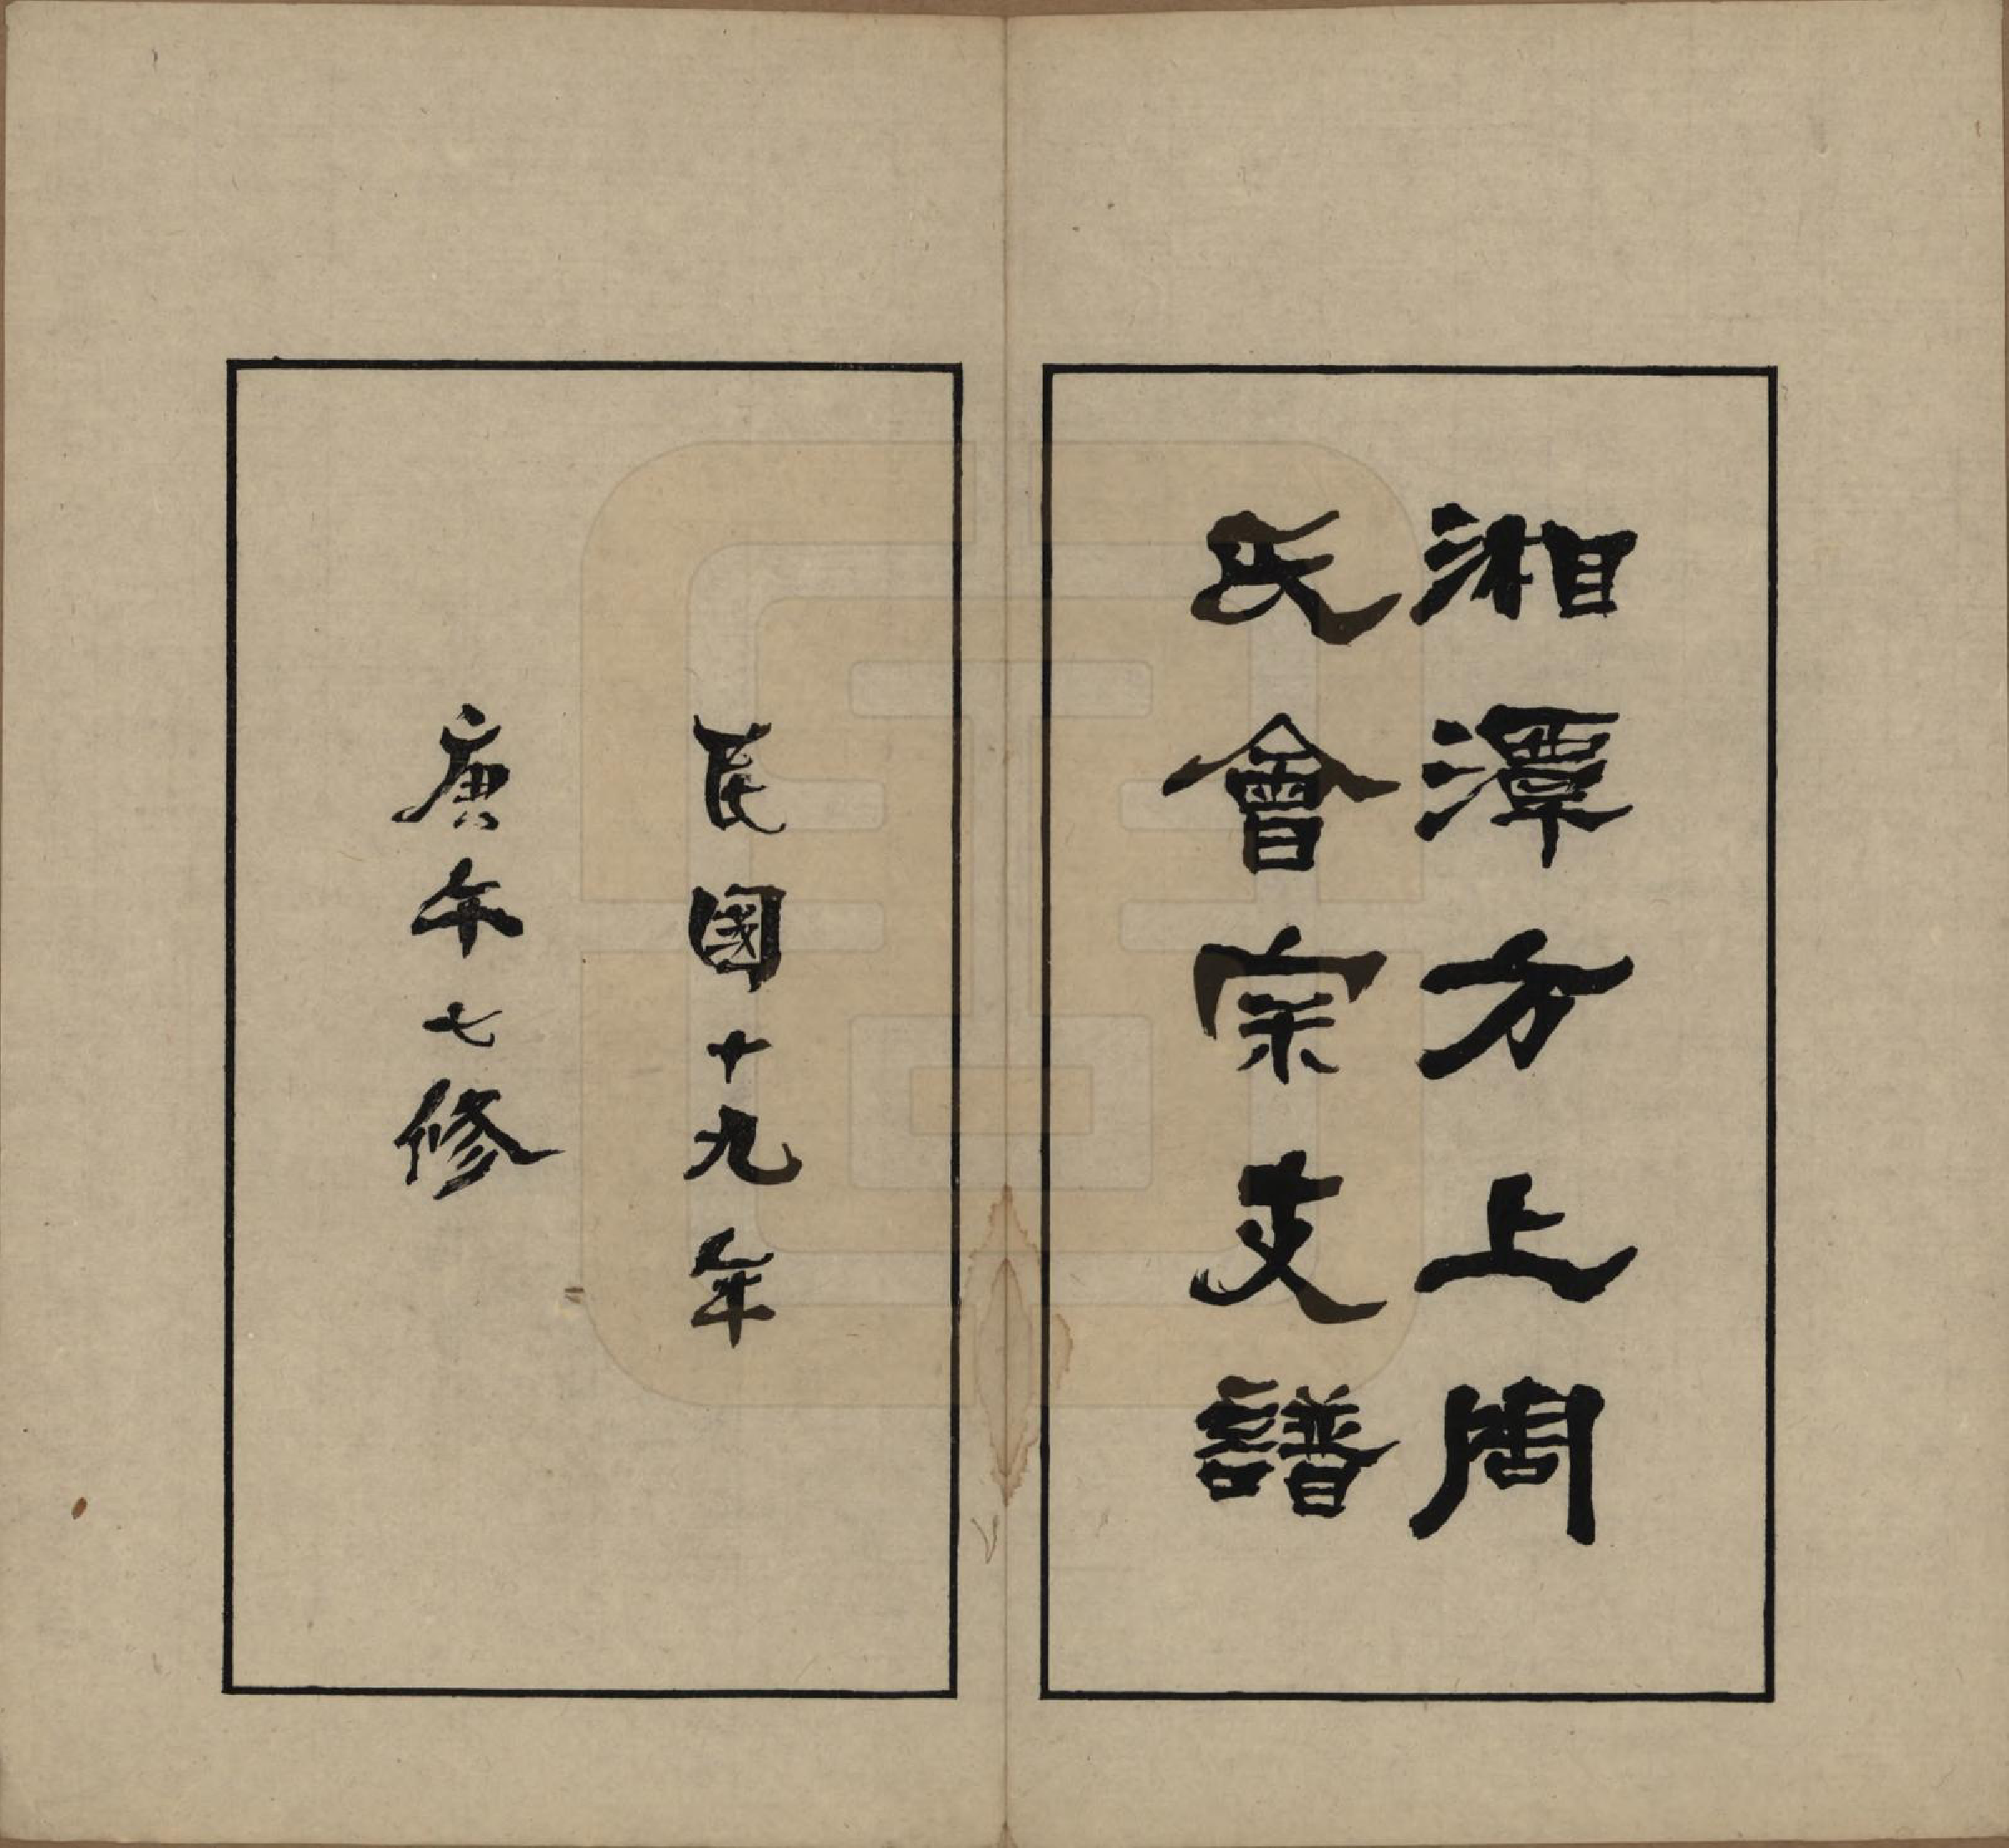 湘潭方上周
氏會宗支譜
民國十九年
庚午七修